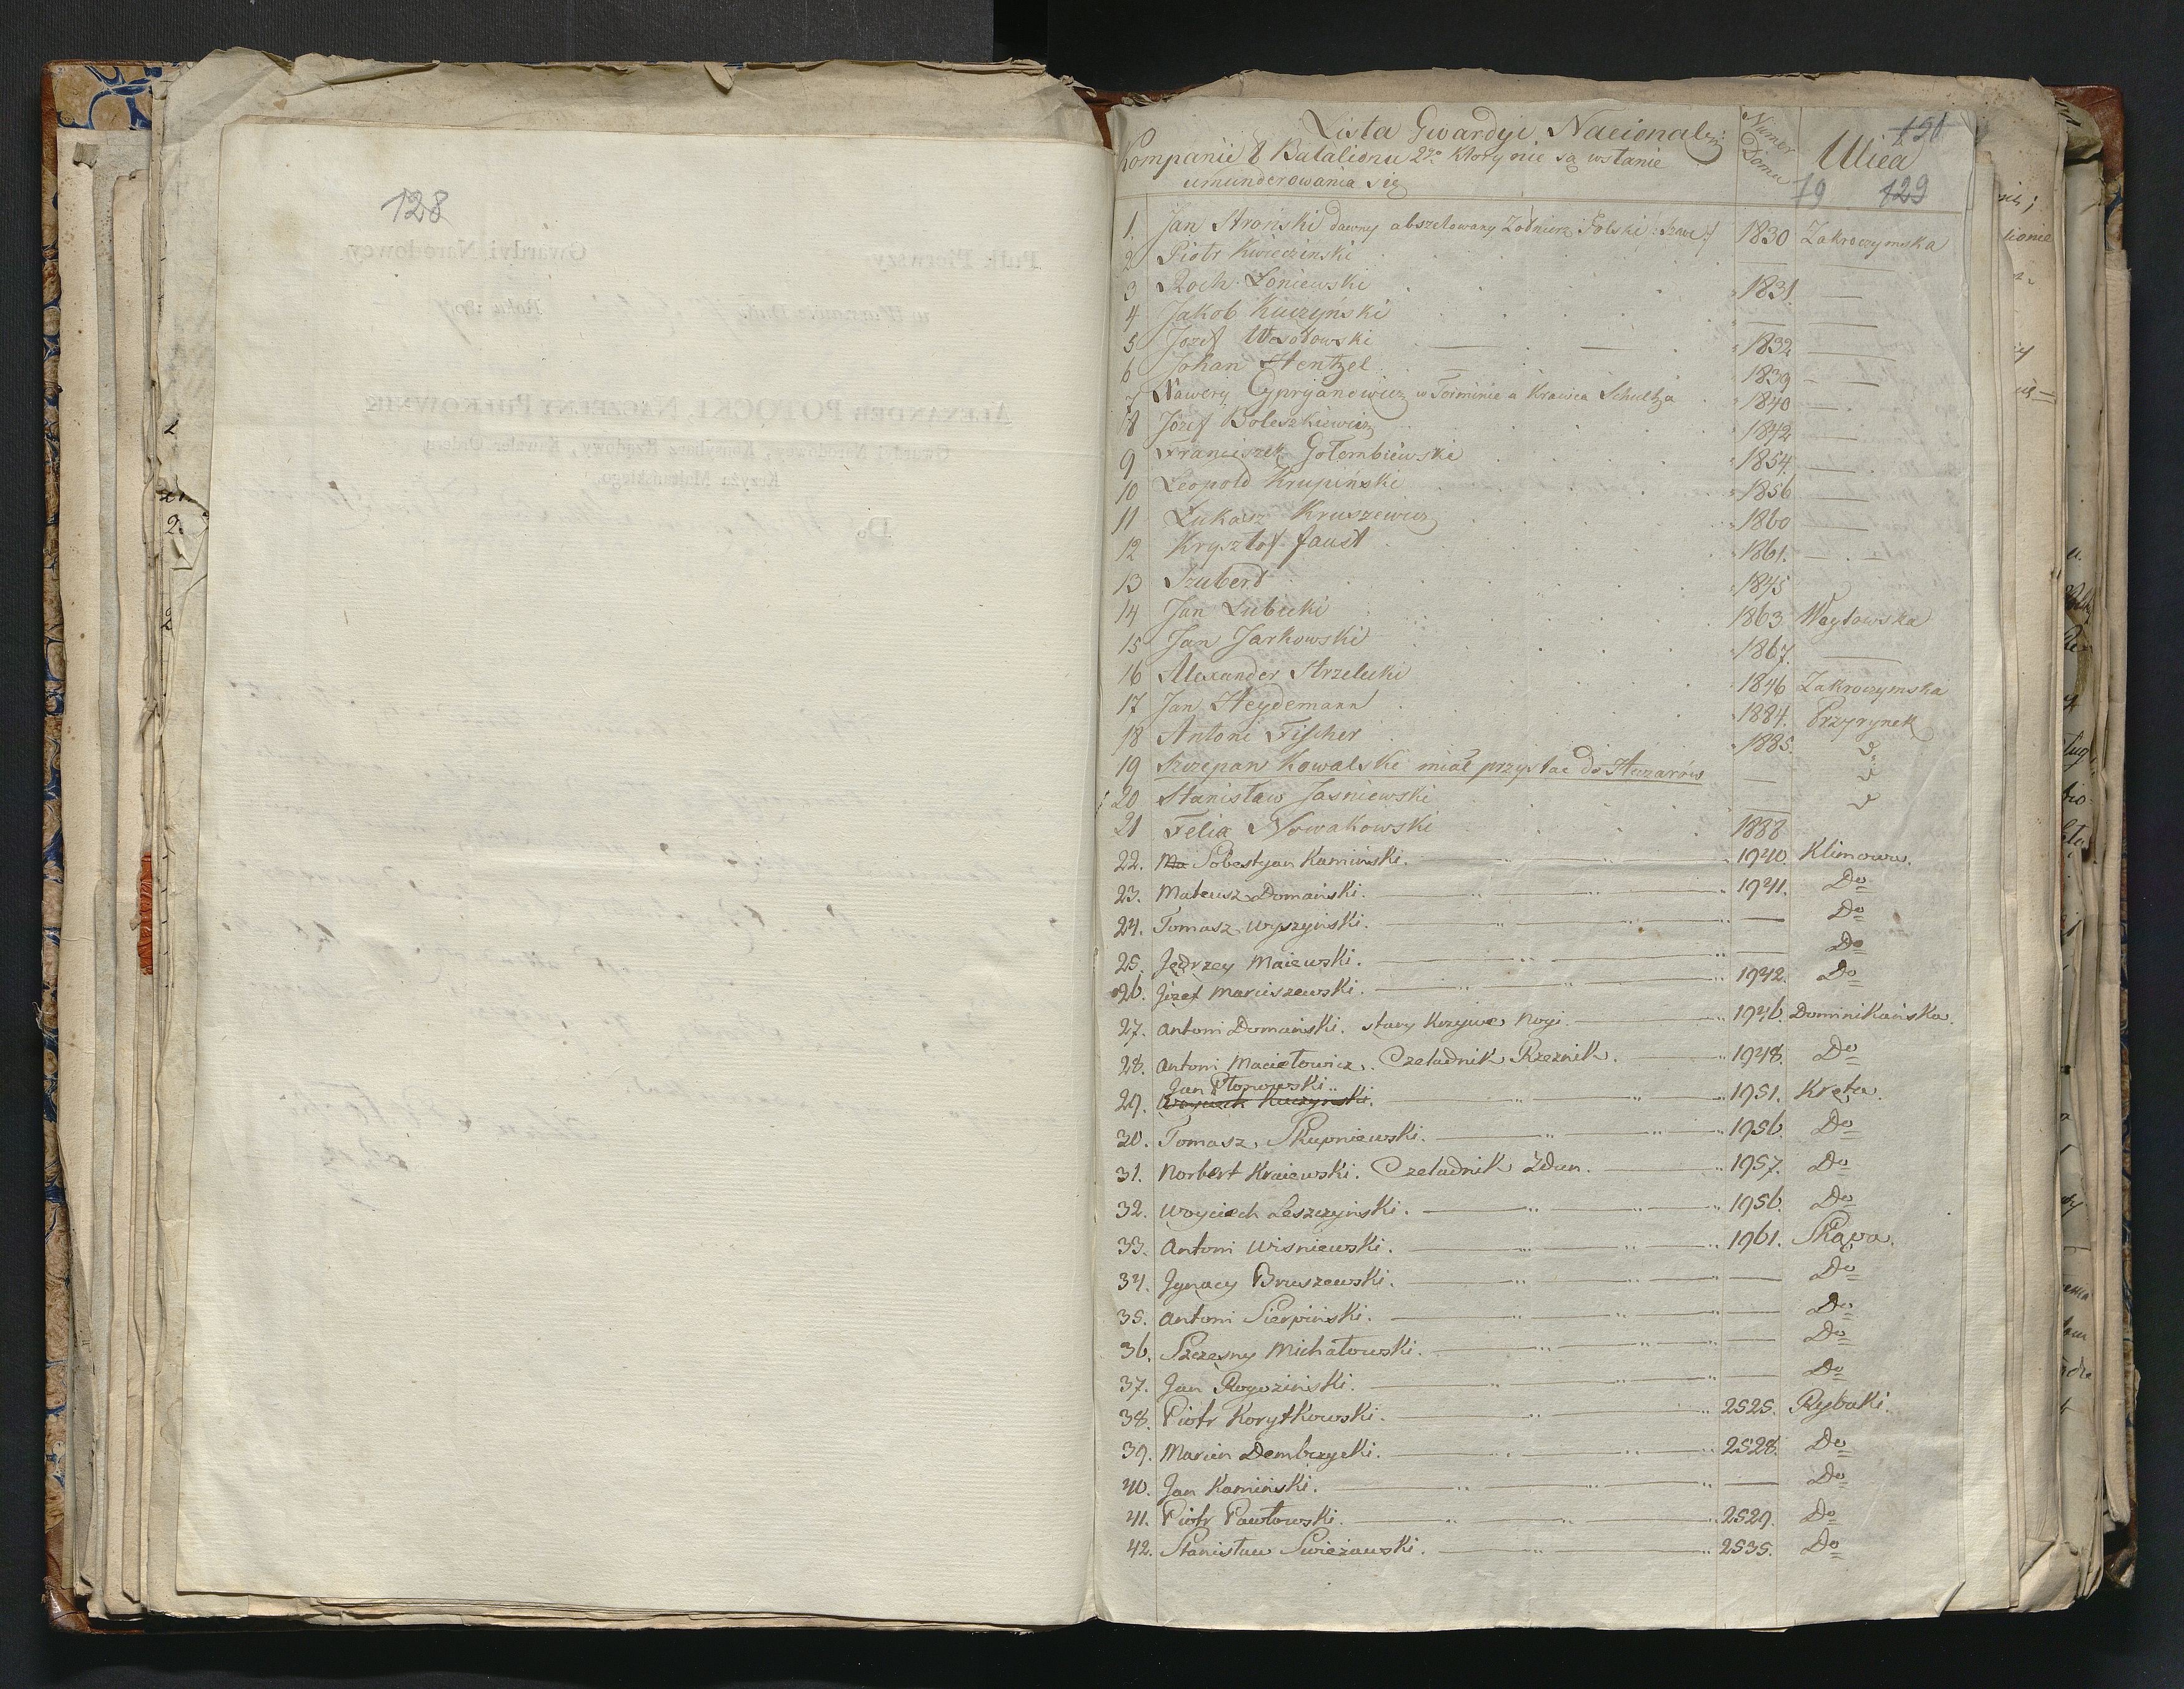 128
Lista Gwardyi Nacionalny
Kompanii 8 Batalionu 2go ktory nie są wstanie
umunderowania się
Numer Domu
Ulica
130
79 129
1. Jan Stroiński dawny abszetowany Zołnierz Polski 1830 Zakroczymska
2 Piotr Kwieciński — —
3 Roch Łoniewski 1831. —
4 Jakob Kuczyński — —
5 Jozef Wesołowski — — 1832 —
6 Johan Hentzel 1839 — —
7 Xawery Cypryanowicz w Terminie a Krawca Schultza 1840 —
8 Józef Boleszkiewicz 1842 —
9 Franciszek Gołembiewski 1854. —
10 Leopold Krupiński 1856 —
11 Łukasz Kruszewicz 1860 —
12 Krysztof Faust 1861. — —
13 Szuberd 1845
14 Jan Lubicki 1863 Waytowska
15 Jan Jarkowski 1867. —
16 Alexander Strzelecki 1846 Zakroczymska
17 Jan Heydemann 1884. Przyrynek
18 Antoni Fischer 1885.
19 Szczepan Kowalski miał przystac do Huzarów —
20 Stanisław Jasniewski —
21 Felix Nowakowski 1888
22. Ma Sobestyan Kamiński. 1940. Klimowa.
23. Mateusz Domański. 1941. Do
24. Tomasz Wyszyński. — Do
25. Jędrzey Maiewski. — Do
26. Józef Maruszewski. 1942. Do
27. Antoni Domański. stary Krzywe Nogi. 1946. Dominikańska.
28. Antoni Maciełowicz. Czeladnik Rzeznik. 1948. Do
Jan Płonowski..
29. Woyciech Kuczynski. 1951. Kręta.
30. Tomasz Skupniewski. 1956. Do
31. Norbert Kraiewski. Czeladnik Zdun. 1957. Do
32. Woyciech Leszczyński. 1956. Do
33. Antoni Wisniewski. 1961. Rąpa.
34. Jgnacy Bruszewski. — Do
35. Antoni Sierpiński. — Do
36. Szczęsny Michałowski. — Do
37. Jan Rogoziński. — Do
38. Piotr Korytkowski. 2525. Rybaki.
39. Marcin Dembrzycki. 2528. Do
40. Jan Kamiński. — Do
41. Piotr Pawłowski. 2529. Do
42. Stanisław Swieżawski. 2535. Do